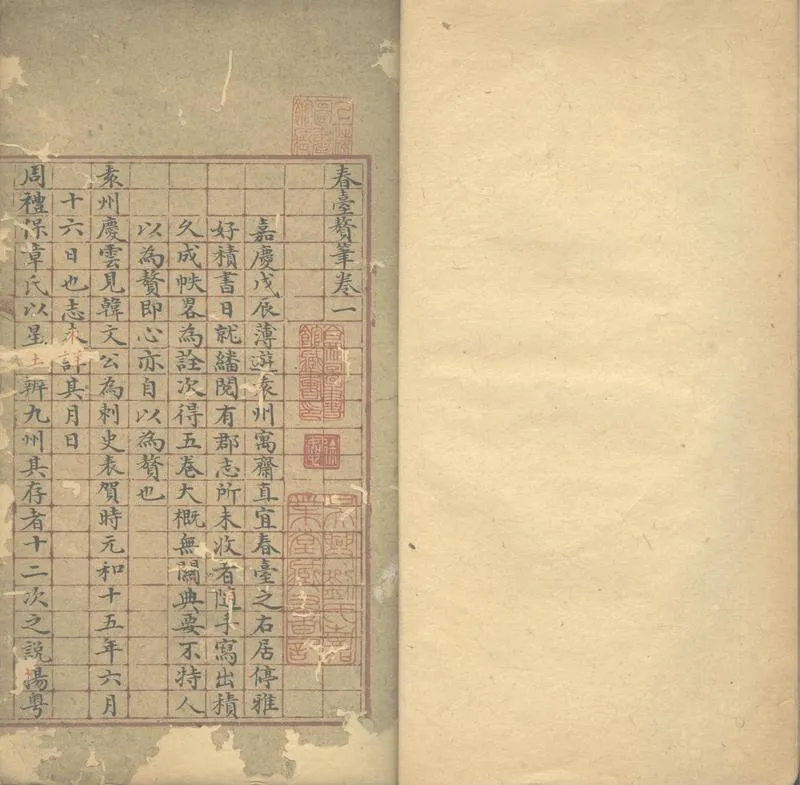 春臺贅筆卷一
嘉慶戊辰薄遊袁州寓齋直宜春臺之右居停雅
好積書日就繙閱有郡志所未收者隨手寫出積
久成帙畧為詮次得五卷大概無關典要不特人
以為贅即心亦自以為贅也
袁州慶雲見韓文公為刺史表賀時元和十五年六月
十六日也志未詳其月日
周禮保章氏以星土辨九州其存者十二次之說揚粤
吳興劉氏嘉
業堂藏書記